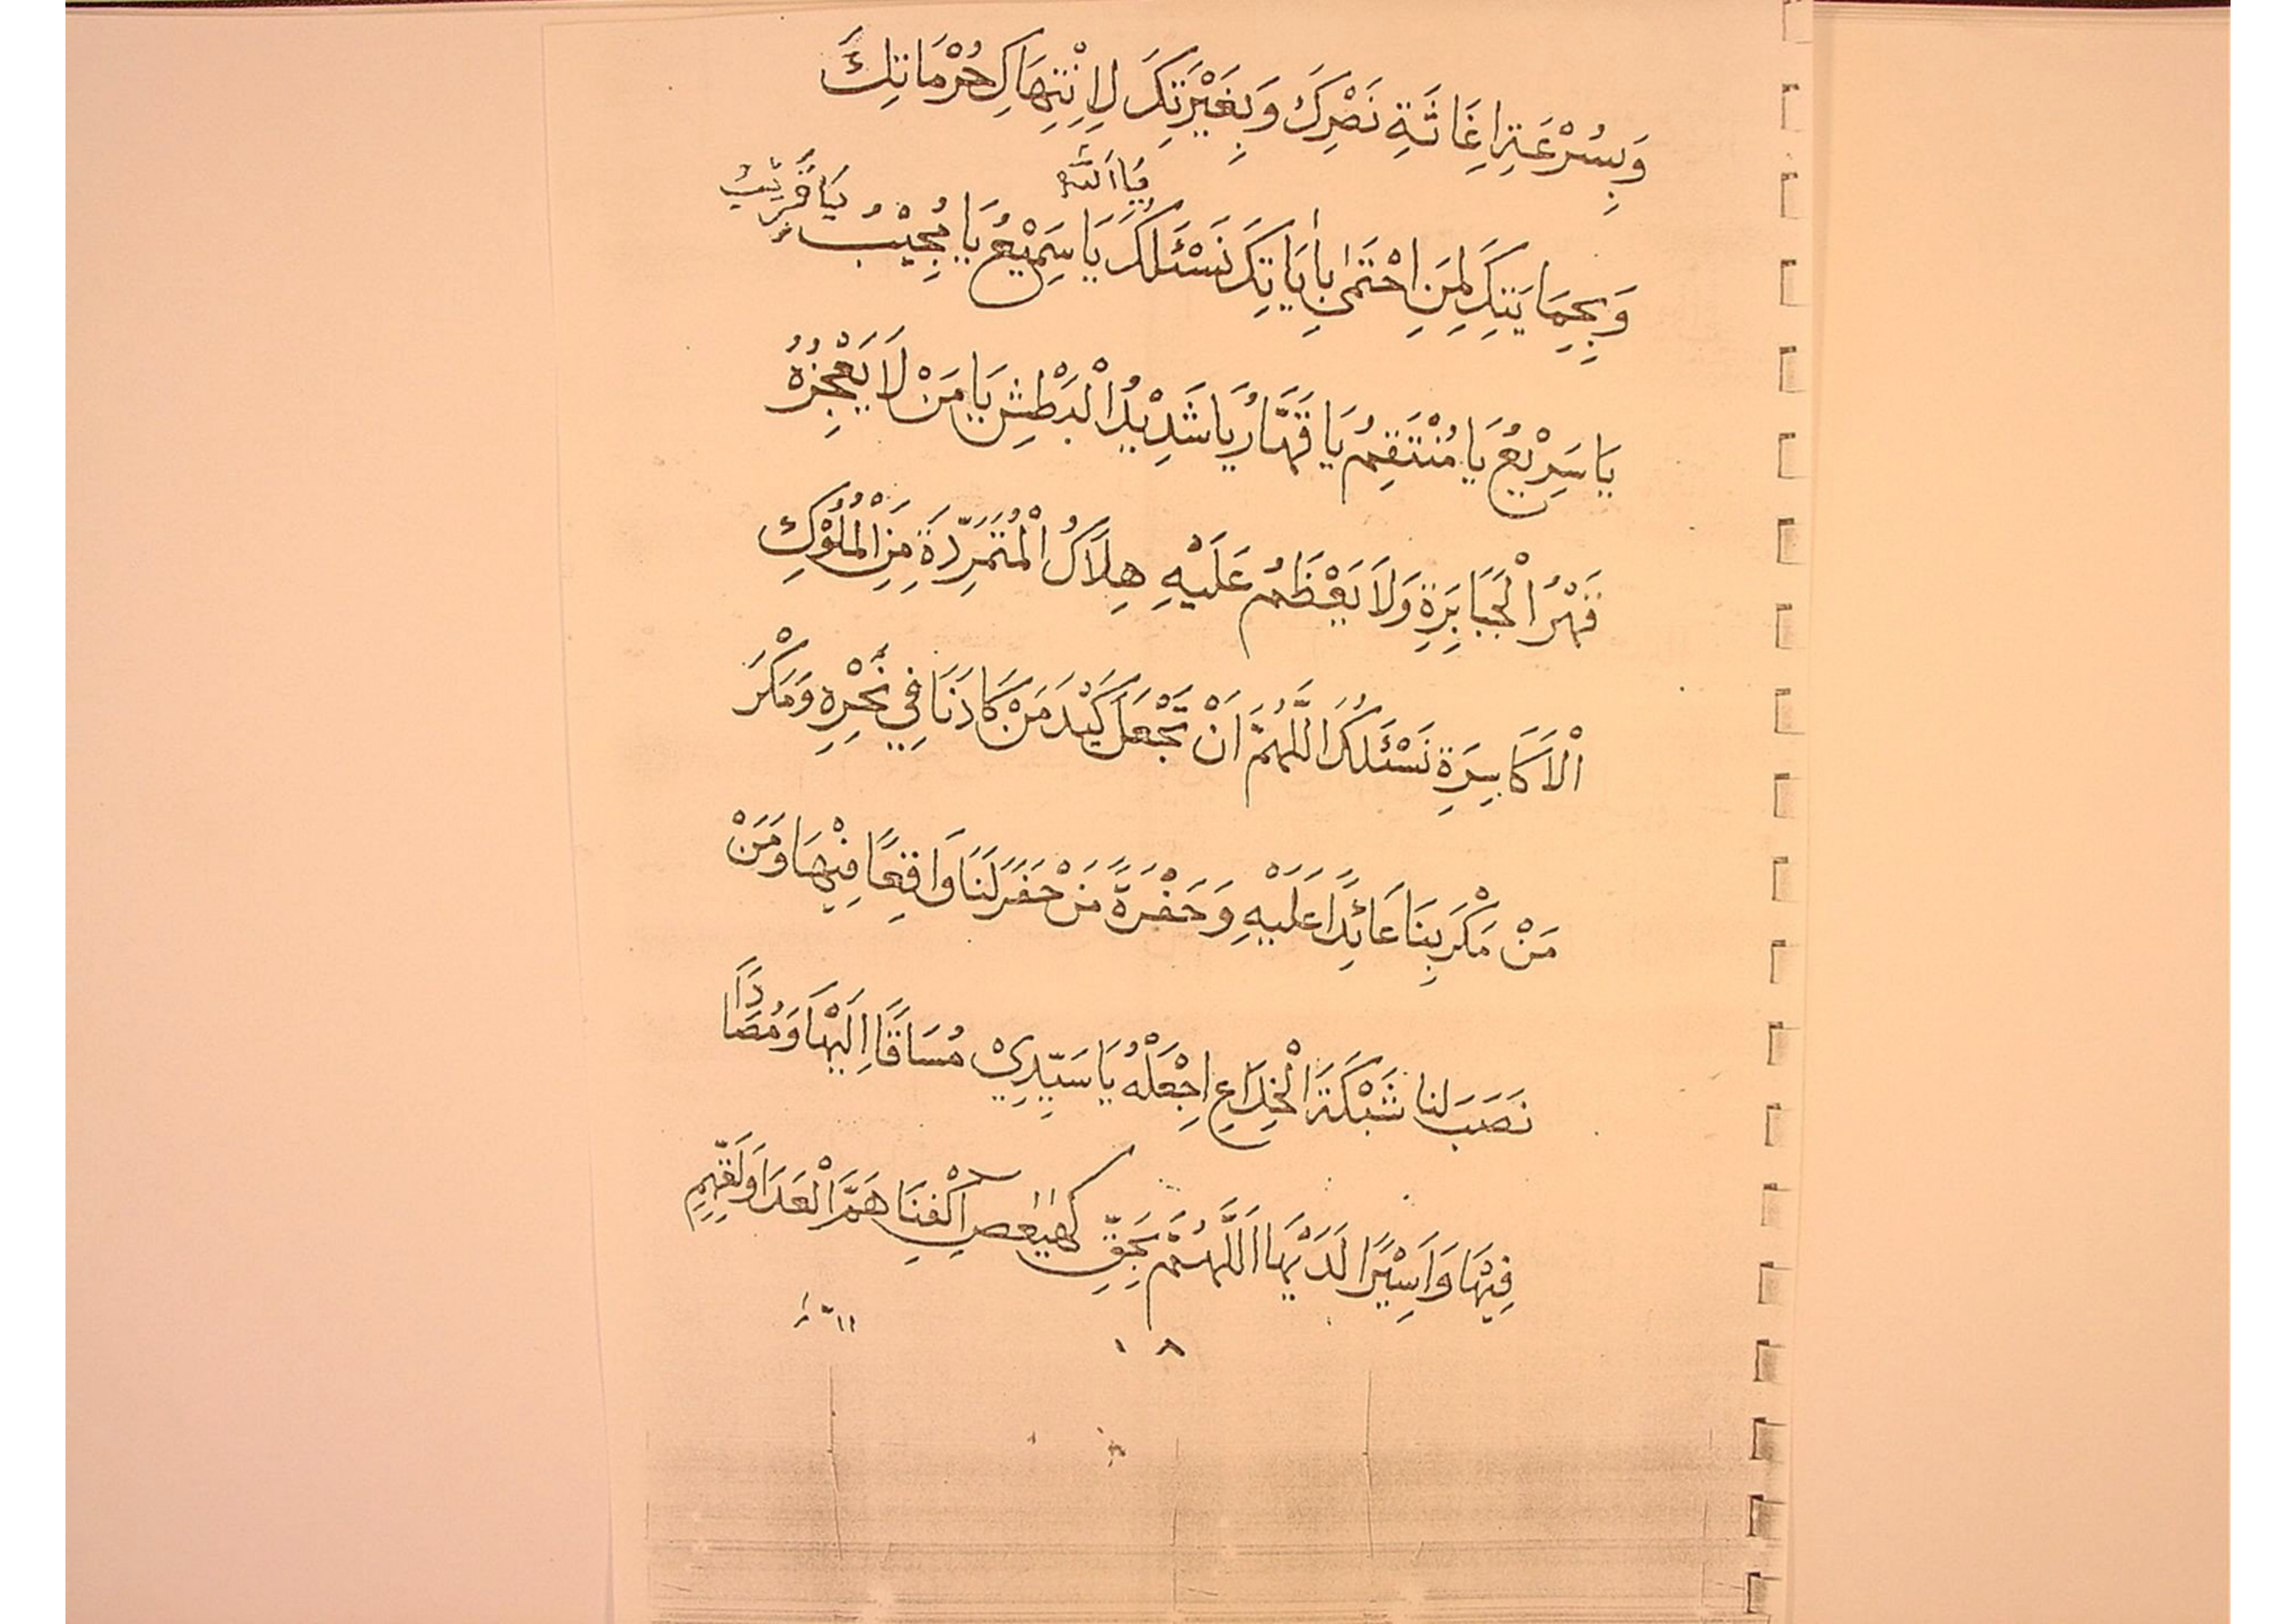 وَبِسُرْعَةِ اِغَاثَةِ نَصْرِكَ وَبِغَيْرَتِكَ لِاِنْتِهَاكِ حُرْمَاتِكَ
يَا اَللّٰهُ
وَبِحِمَايَتِكَ لِمَنِ احْتَمٰى بِاٰيَاتِكَ نَسْئَلُكَ يَا سَمِيْعُ يَا مُجِيْبُ يَا قَرِيْبُ
يَا سَرِيْعُ يَا مُنْتَقِمُ يَا قَهَّارُ يَا شَدِيْدُ الْبَطْشِ يَا مَنْ لَا يَعْجِزُهُ
قَهْرُ الْجَبَابِرَةِ وَلَا يَعْظُمُ عَلَيْهِ هِلَاكُ الْمُتَمَرِّدَةِ مِنَ الْمُلُوْكِ
الْاَكَاسِرَةِ نَسْئَلُكَ اللَّهُمَّ اَنْ تَجْعَلَ كَيْدَ مَنْ كَادَنَا فِي نَحْرِهِ وَمَكْرَ
مَنْ مَكْرَ بِنَا عَائِدًا عَلَيْهِ وَحَفْرَةً مَنْ حَفَرَ لَنَا وَاقِعًا فِيْهَا وَمَنْ
نَصَبَ لنا شَبْكَةَ الْخِدَاعِ اِجْعَلْهُ يَا سَيِّدِيْ مُسَاقًا اِلَيْهَا وَمُصَادًا
فِيْهَا وَاَسِيْرًا لَدَيْهَا اَللَّهُمَّ بِحَقِّ كٓهٰيٰعٓصٓ اِكْفِنَا هَمَّ الْعَدَا وَلَقِّهِمِ